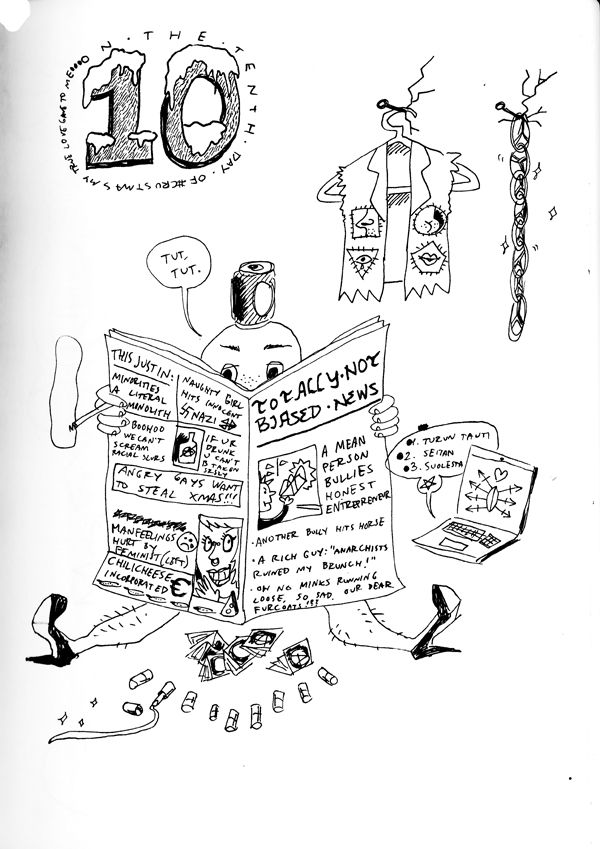 ON · THE · TENTH · DAY · OF · #CRUSTMAS MY TRUE LOVE GAVE TO MEOOOO
10
TUT,
TUT.
THIS JUST IN:
MINORITIES
A LITERAL
MONOLITH
BOOHOO
WE CAN'T
SCREAM
RACIAL SLURS
NAUGHTY GIRL
HITS INNOCENT
NAZI
IF UR
DRUNK
U CAN'T
B TAKEN
SRSLY
ANGRY GAYS WANT
TO STEAL XMAS!!!
MANFEELINGS
HURT BY
FEMINIST (LEFT)
CHILICHEESE
INCORPORATED €
TOTALLY·NOT
BIASED·NEWS
A MEAN
PERSON
BULLIES
HONEST
ENTREPRENEUR
· ANOTHER BULLY HITS HORSE
· A RICH GUY: "ANARCHISTS
RUINED MY BRUNCH!"
· OH NO MINKS RUNNING
LOOSE, SO SAD. OUR DEAR
FURCOATS!!?
1. TURUN TAUTI
2. SEITAN
3. SUOLESTA